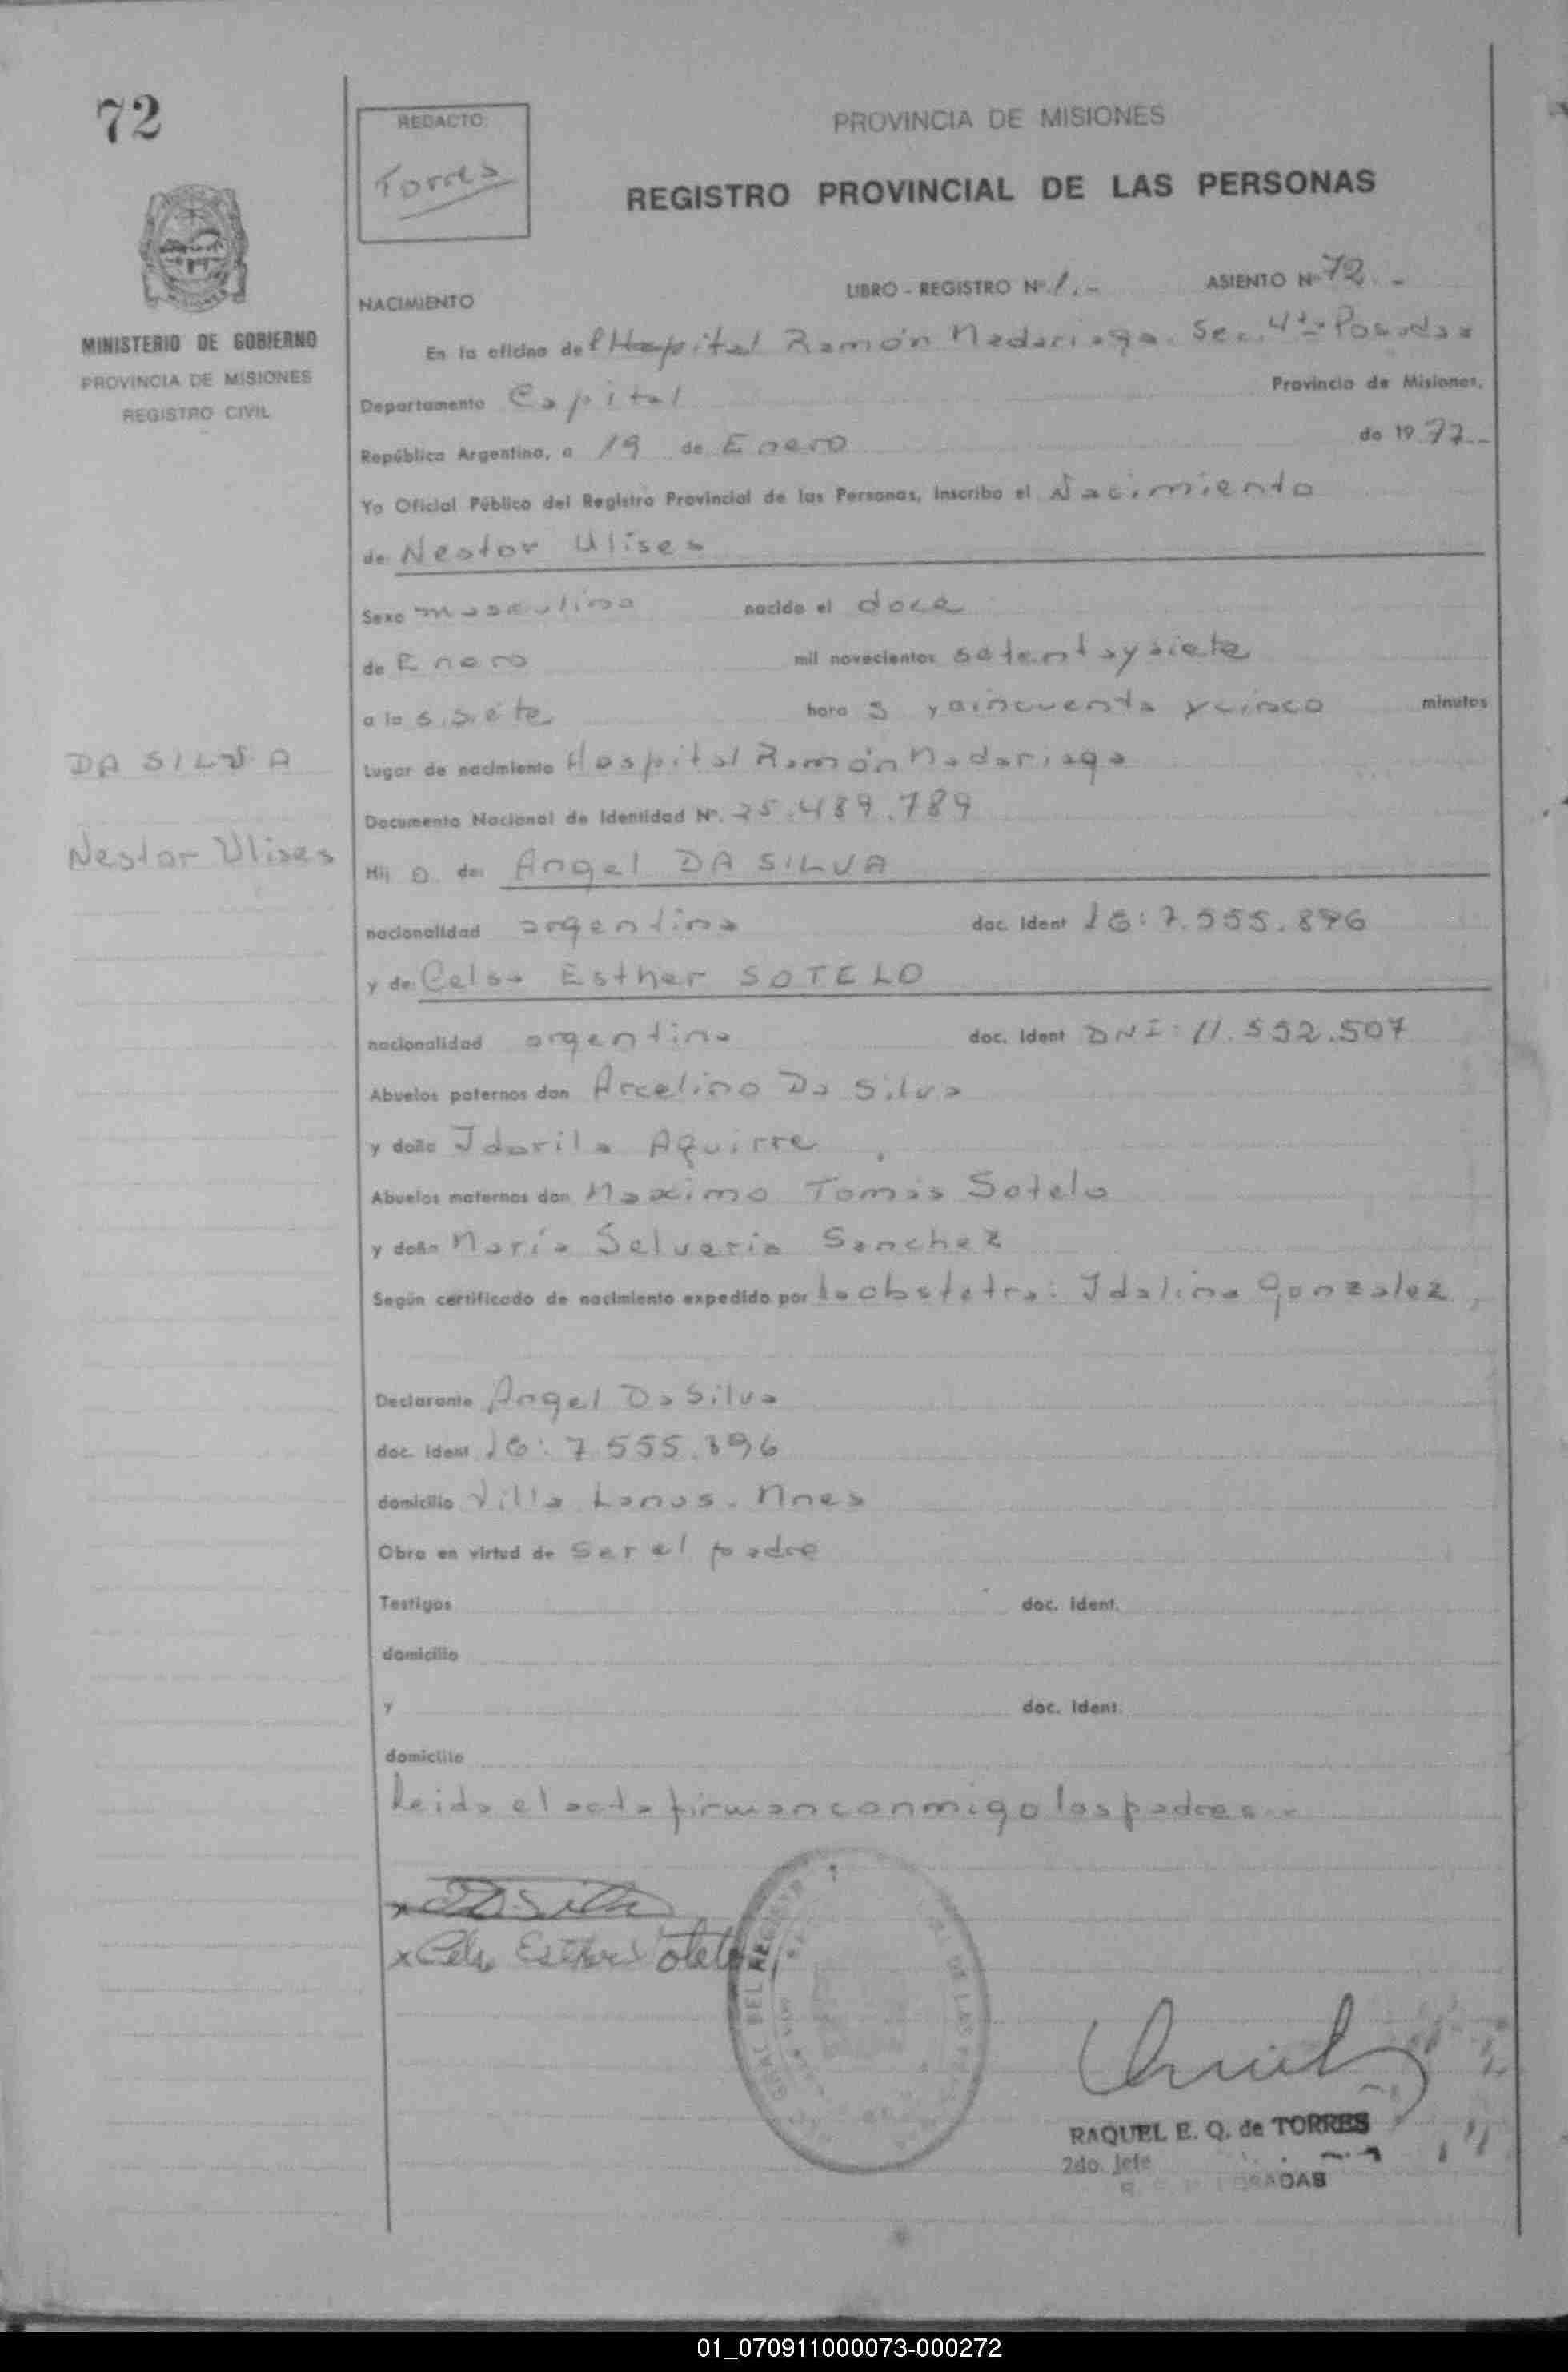 72
REDACTO:
Torres
PROVINCIA DE MISIONES
REGISTRO PROVINCIAL DE LAS PERSONAS
MINISTERIO DE GOBIERNO
PROVINCIA DE MISIONES
REGISTRO CIVIL
NACIMIENTO
LIBRO - REGISTRO Nº 1.- ASIENTO Nº 72.-
En la oficina del Hospital Ramón Madariaga. Sec. 4ta Posadas
Departamento Capital Provincia de Misiones,
República Argentina, a 19 de Enero de 1977.-
Yo Oficial Público del Registro Provincial de las Personas, inscribo el Nacimiento
de Nestor Ulises
Sexo masculino nacido el doce
de Enero mil novecientos setenta y siete
a la s. siete hora s y cincuenta y cinco minutos
Lugar de nacimiento Hospital Ramón Madariaga
Documento Nacional de Identidad Nº. 25.489.789
Hij o de: Angel DA SILVA
nacionalidad argentina doc. Ident 7.555.896
y de: Celsa Esther SOTELO
nacionalidad argentina doc. Ident DNI: 11.552.507
Abuelos paternos don Arcelino Da Silva
y doña Idorila Aguirre
Abuelos maternos don Maximo Tomás Sotelo
y doña María Selvaria Sanchez
Según certificado de nacimiento expedido por la obstetra: Idalina Gonzalez,
DA SILVA
Nestor Ulises
Declarante Angel Da Silva
doc. Ident 7.555.896
domicilio Villa Lanus. Mnes
Obra en virtud de ser el padre
Testigos doc. Ident.
domicilio
y doc. Ident.
domicilio
Leida el acta firman conmigo los padres.-
x Da Silva
x Celsa Esther Sotelo
RAQUEL E. Q. de TORRES
2do. Jefe
01_070911000073-000272